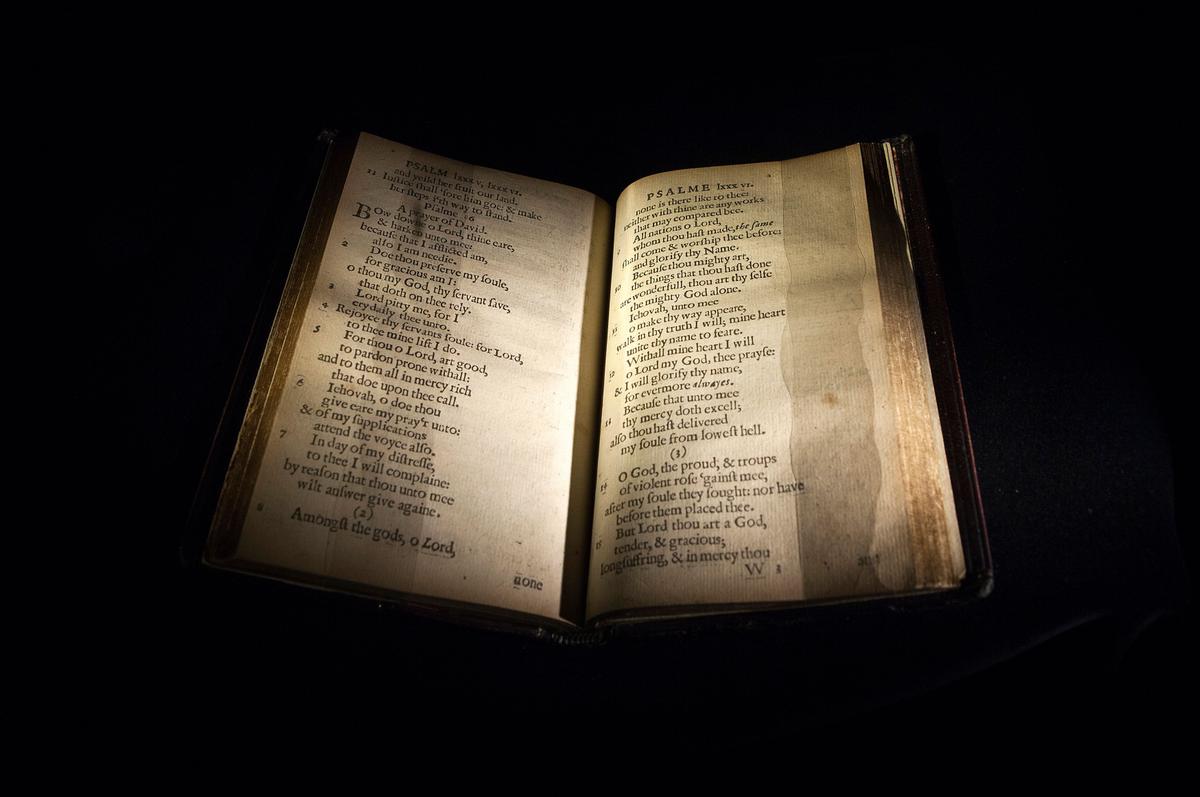 PSALM lxxxv, lxxxvi.
and yeild her fruit our land.
12 Iuſtice ſhall 'fore him goe: & make
her ſteps i'th way to ſtand.
Pſalme 86
A prayer of David.
BOw downe o Lord, thine eare,
& harken unto mee:
becauſe that I afflicted am,
alſo I am needie.
2 Doe thou preſerve my ſoule,
for gracious am I:
o thou my God, thy ſervant ſave,
that doth on thee rely.
3 Lord pitty me, for I
cry daily thee unto.
4 Rejoyce thy ſervants ſoule: for Lord,
to thee mine lift I do.
5 For thou o Lord, art good,
to pardon prone withall:
and to them all in mercy rich
that doe upon thee call.
6 Iehovah, o doe thou
give eare my pray'r unto:
& of my ſupplications
attend the voyce alſo.
7 In day of my diſtreſſe,
to thee I will complaine:
by reaſon that thou unto mee
wilt anſwer give againe.
(2)
8 Amongſt the gods, o Lord,
none
PSALME lxxxvi.
none is there like to thee:
neither with thine are any works
that may compared bee.
All nations o Lord,
whom thou haſt made, the ſame
ſhall come & worſhip thee before:
and glorify thy Name.
10 Becauſe thou mighty art,
the things that thou haſt done
are wonderfull, thou art thy ſelfe
the mighty God alone.
Iehovah, unto mee
o make thy way appeare,
walk in thy truth I will; mine heart
unite thy name to feare.
12 Withall mine heart I will
o Lord my God, thee prayſe:
& I will glorify thy name,
for evermore alwayes.
Becauſe that unto mee
thy mercy doth excell;
alſo thou haſt delivered
my ſoule from loweſt hell.
(3)
14 O God, the proud, & troups
of violent roſe 'gainſt mee,
after my ſoule they ſought: nor have
before them placed thee.
15 But Lord thou art a God,
tender, & gracious;
longſuffring, & in mercy thou
W 3